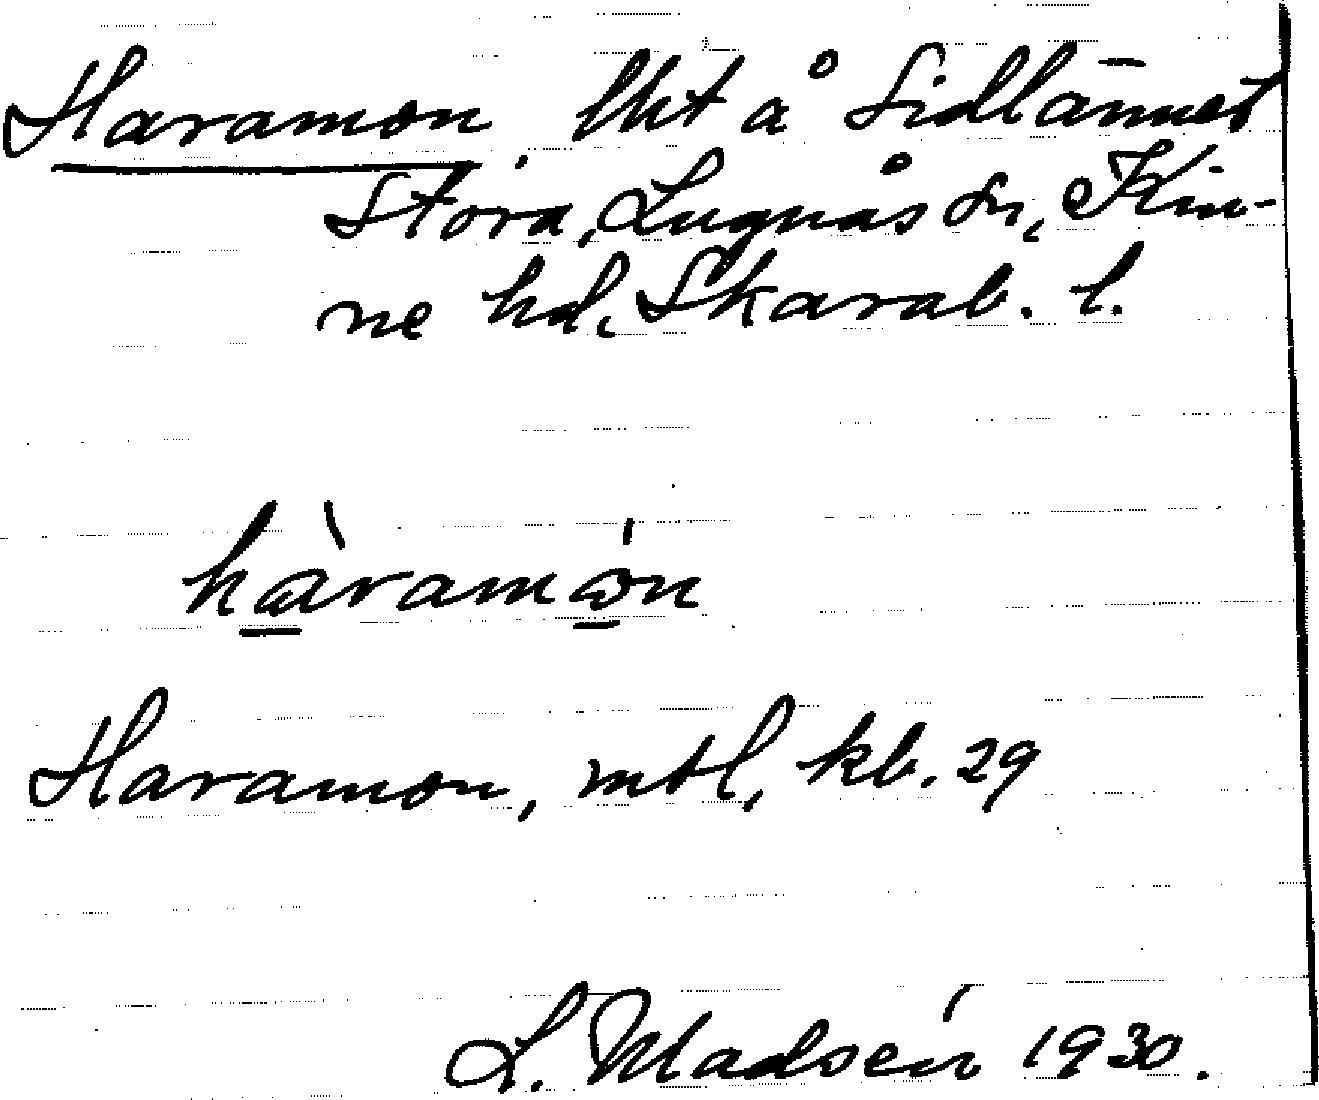 Haramon, lht å Sidlännet
Stora, Lugnås sn, Kin-
ne hd, Skarab. l.
hàramón
Haramon, mtl, kb. 29
L. Madsén 1930.